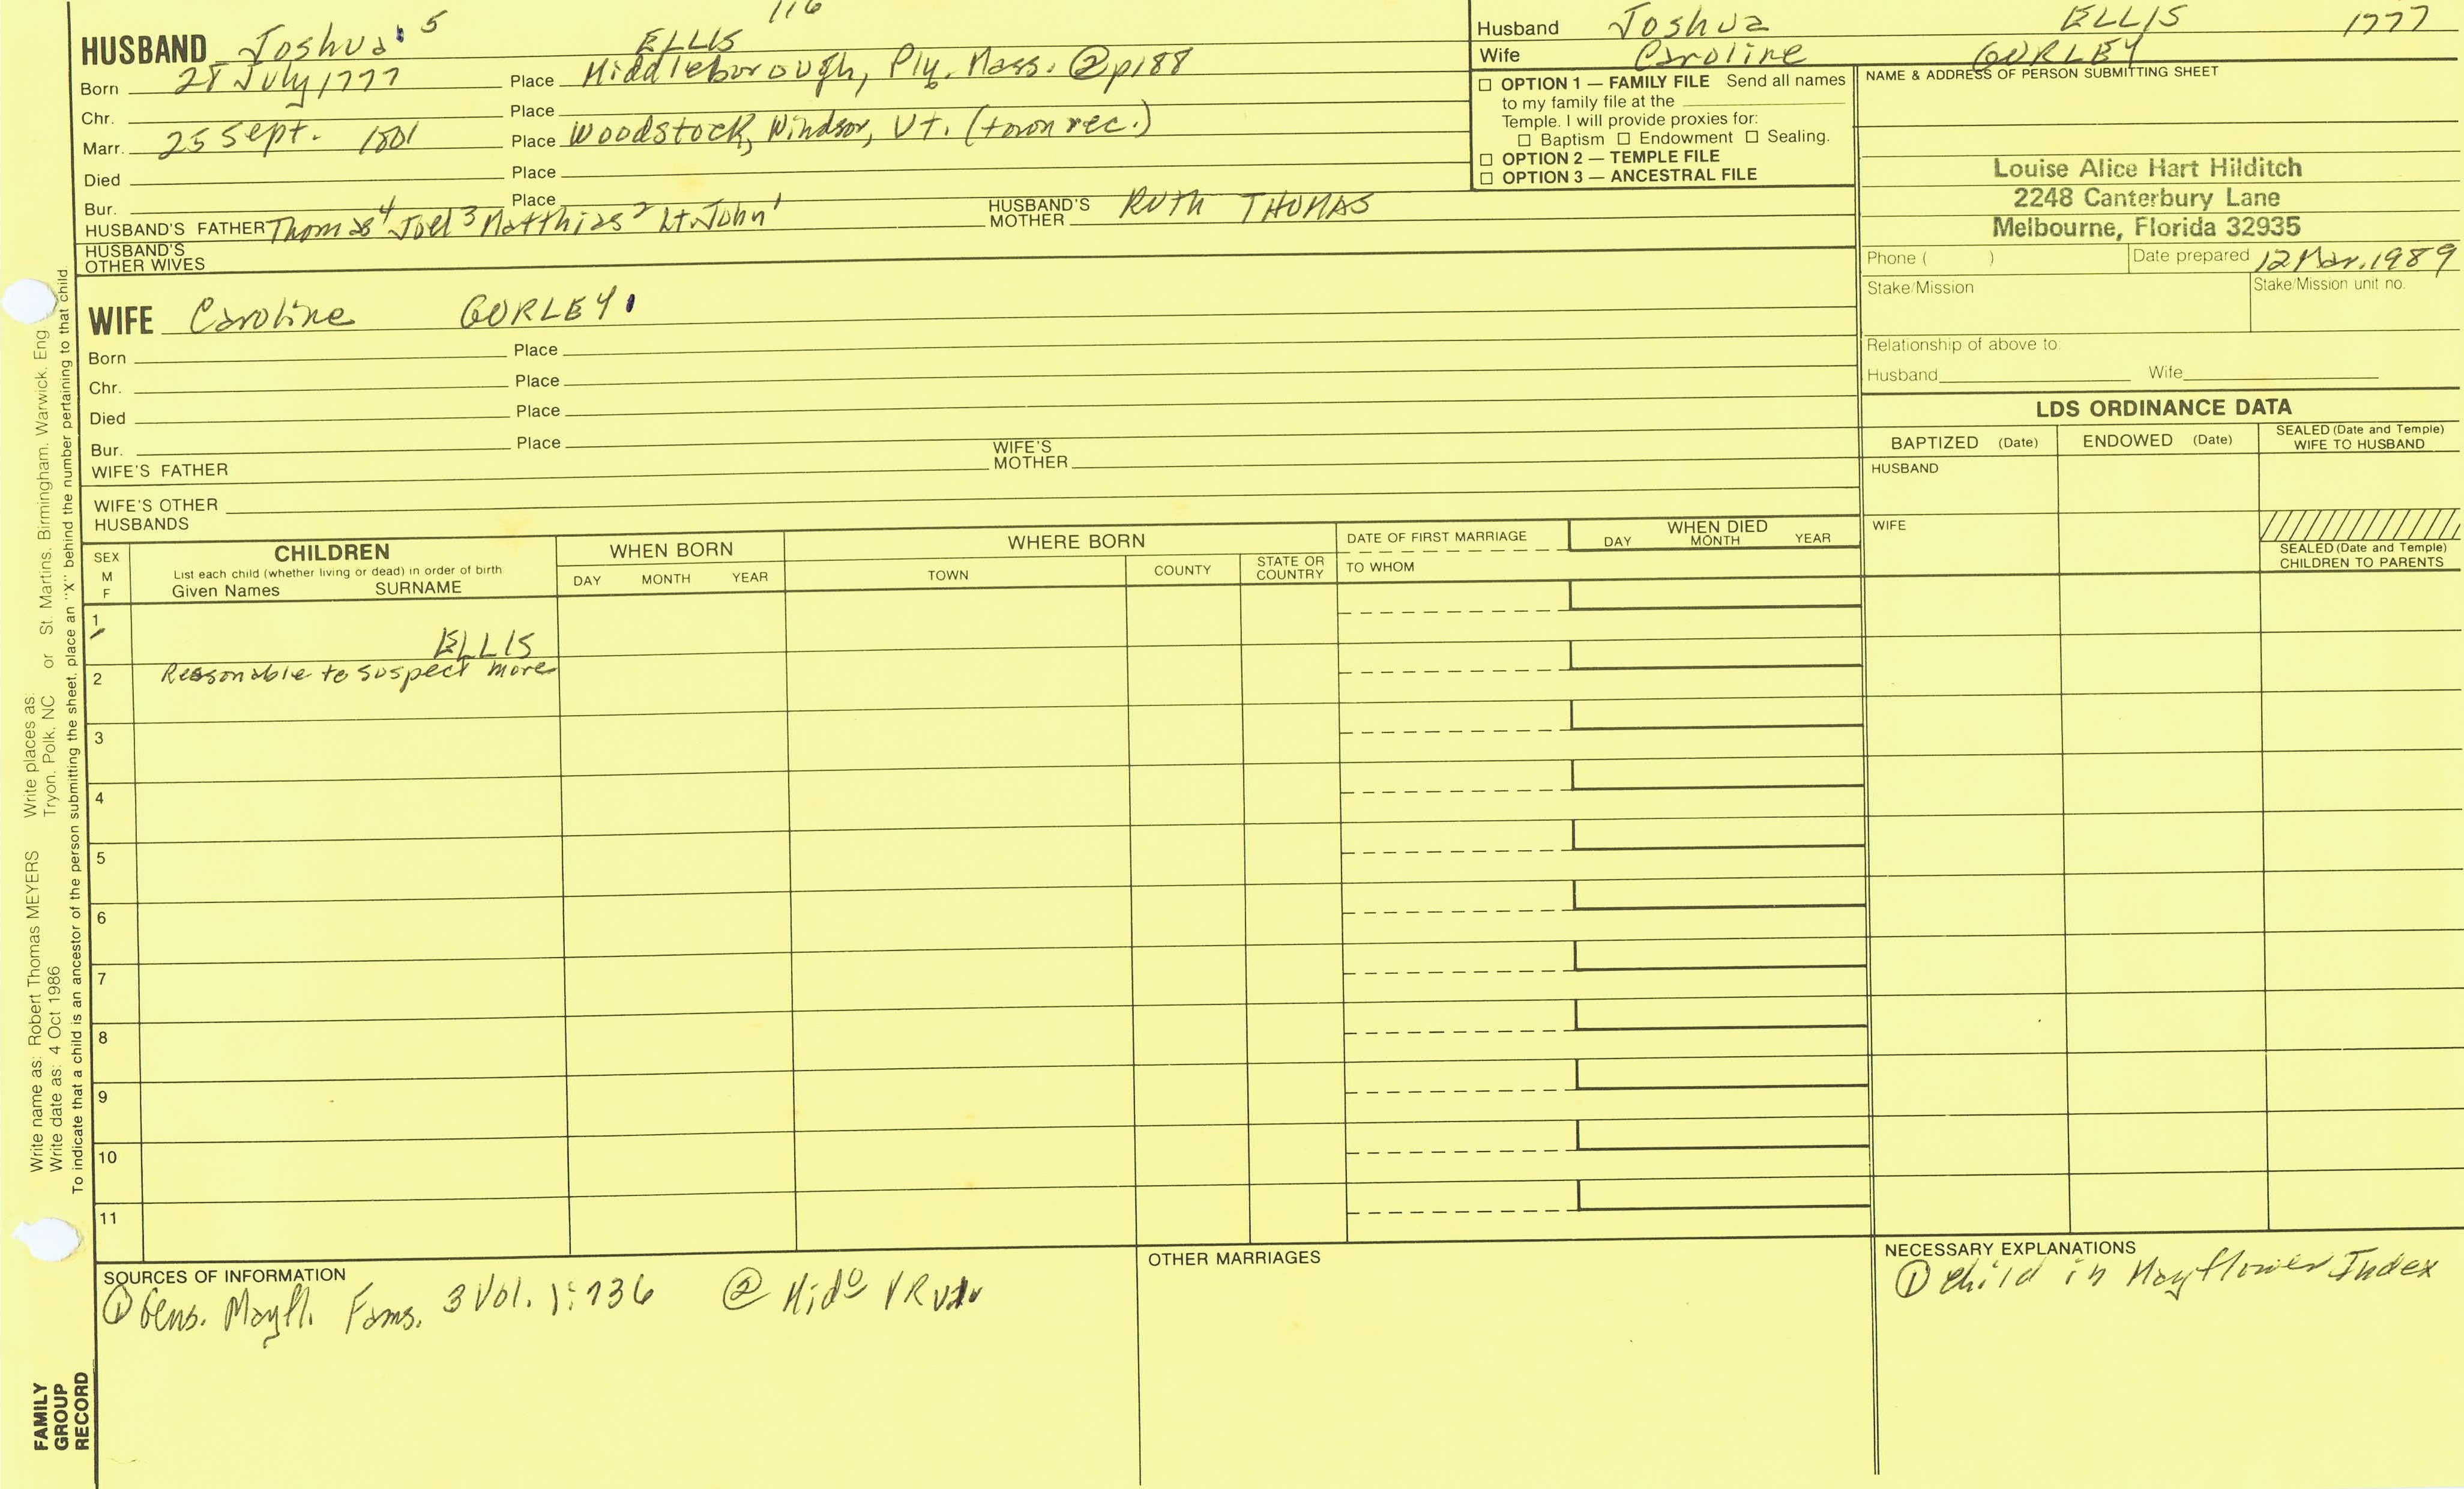 116
HUSBAND Joshua 5 ELLIS
Born 28 July 1777 Place Middleborough, Ply. Mass. ② p188
Chr. Place
Marr. 25 Sept. 1801 Place Woodstock, Windsor, Vt. (town rec.)
Died Place
Bur. Place
HUSBAND'S FATHER Thomas4 Joel3 Matthias2 Lt. John1 HUSBAND'S MOTHER RUTH THOMAS
HUSBAND'S OTHER WIVES
Husband Joshua ELLIS 1777
Wife Caroline GURLEY
☐ OPTION 1 — FAMILY FILE Send all names
to my family file at the
Temple. I will provide proxies for:
☐ Baptism ☐ Endowment ☐ Sealing.
☐ OPTION 2 — TEMPLE FILE
☐ OPTION 3 — ANCESTRAL FILE
NAME & ADDRESS OF PERSON SUBMITTING SHEET
Louise Alice Hart Hilditch
2248 Canterbury Lane
Melbourne, Florida 32935
Phone ( ) Date prepared 12 Mar. 1989
Stake/Mission Stake/Mission unit no.
Relationship of above to:
Husband Wife
WIFE Caroline GURLEY
Born Place
Chr. Place
Died Place
Bur. Place
WIFE'S FATHER WIFE'S MOTHER
WIFE'S OTHER HUSBANDS
LDS ORDINANCE DATA
BAPTIZED (Date) ENDOWED (Date) SEALED (Date and Temple) WIFE TO HUSBAND
HUSBAND
WIFE
SEALED (Date and Temple) CHILDREN TO PARENTS
SEX M F CHILDREN
List each child (whether living or dead) in order of birth
Given Names SURNAME
WHEN BORN
DAY MONTH YEAR
WHERE BORN
TOWN COUNTY STATE OR COUNTRY
DATE OF FIRST MARRIAGE
TO WHOM
WHEN DIED
DAY MONTH YEAR
1 ELLIS
2 Reasonable to suspect more
3
4
5
6
7
8
9
10
11
SOURCES OF INFORMATION
① Gens. Mayfl. Fams. 3 Vol. 1:736 ② Mido VR
OTHER MARRIAGES
NECESSARY EXPLANATIONS
① Child in Mayflower Index
Write name as: Robert Thomas MEYERS Write places as:
Write date as: 4 Oct 1986 Tryon, Polk, NC or St. Martins, Birmingham, Warwick, Eng
To indicate that a child is an ancestor of the person submitting the sheet, place an "X" behind the number pertaining to that child.
FAMILY
GROUP
RECORD